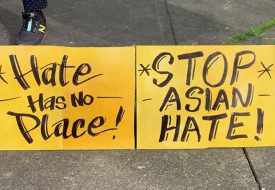 *Hate
- Has No -
Place!
*STOP*
- ASIAN -
HATE!